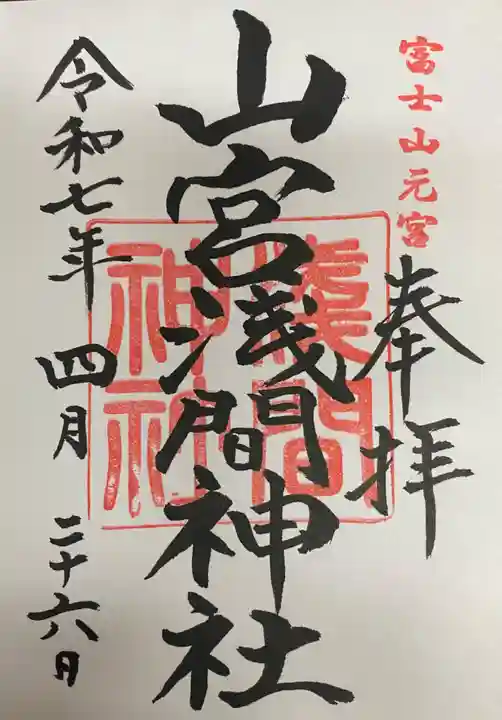 富士山元宮
奉拝
山宮浅間神社
淺間
神社
令和七年四月二十六日